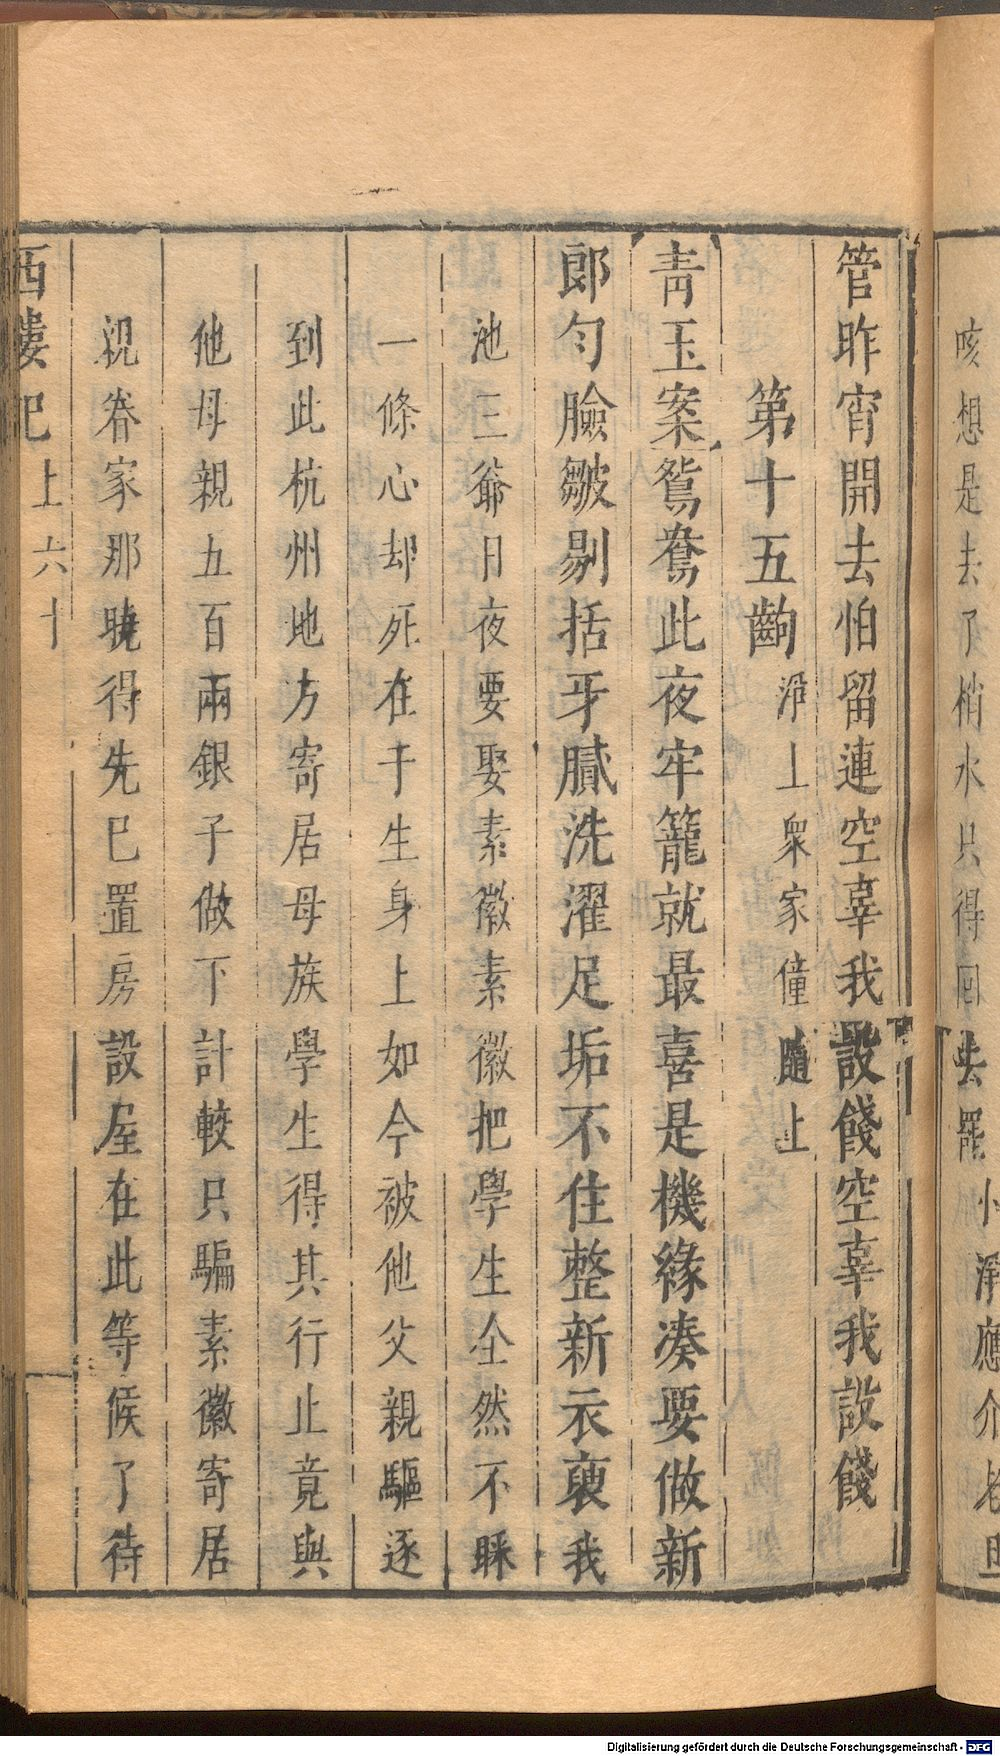 咳想是去了梢水只得回去罷
管昨宵開去怕留連空辜我設餞空辜我設餞
第十五齣 淨上衆家僮隨上
青玉案鴛鴦此夜牢籠就最喜是機緣凑要做新
郎勻臉皺剔括牙膩洗濯足垢不住整新衣䙚我
池三爺日夜要娶素徽素徽把學生全然不睬
一條心却死在于生身上如今被他父親驅逐
到此杭州地方寄居母族學生得其行止竟與
他母親五百兩銀子做下計較只騙素徽寄居
親眷家那曉得先已置房設屋在此等候了待
西樓記上六十
Digitalisierung gefördert durch die Deutsche Forschungsgemeinschaft - DFG